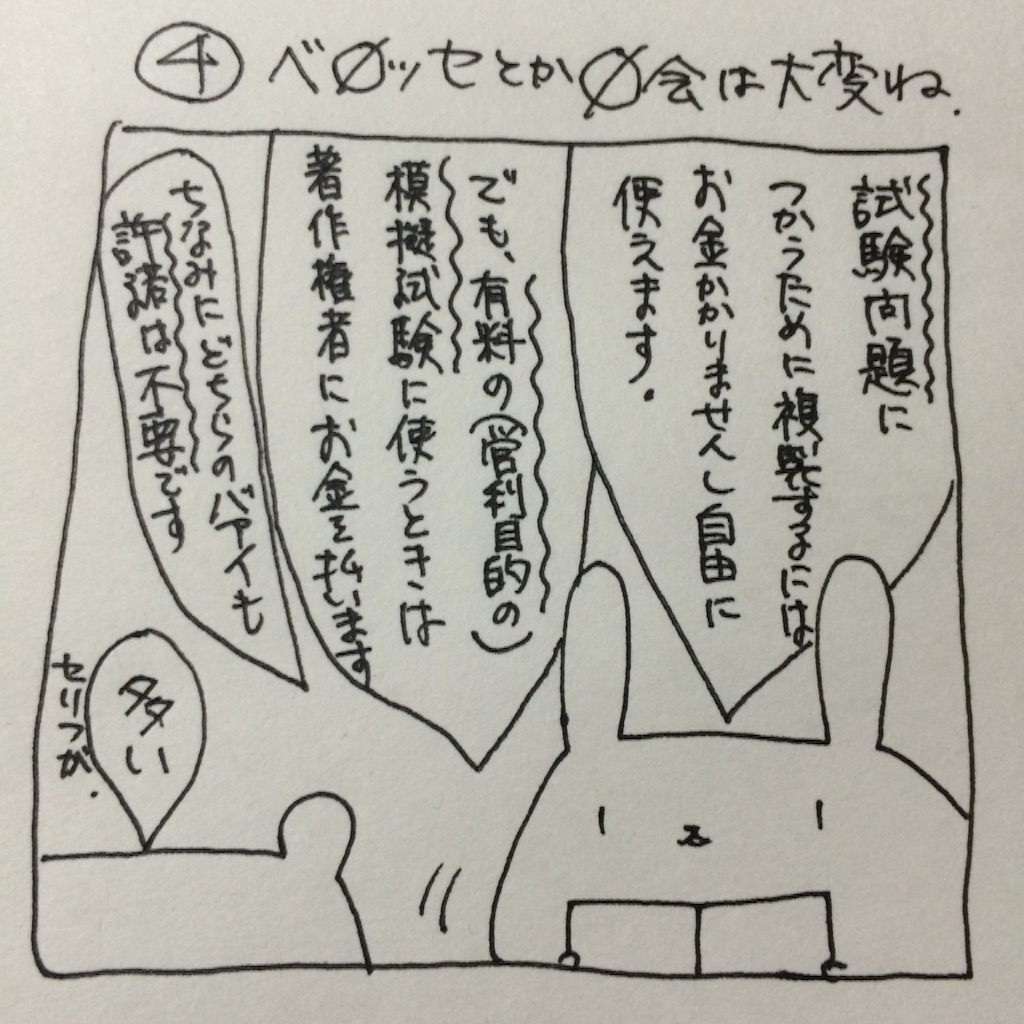 ④ ベ〇ッセとか〇会は大変ね.
試験問題に
つかうために複製するには
お金かかりませんし自由に
使えます.
でも、有料の(営利目的の)
模擬試験に使うときは
著作権者にお金を払います
ちなみにどちらのバアイも
許諾は不要です
多い
セリフが.